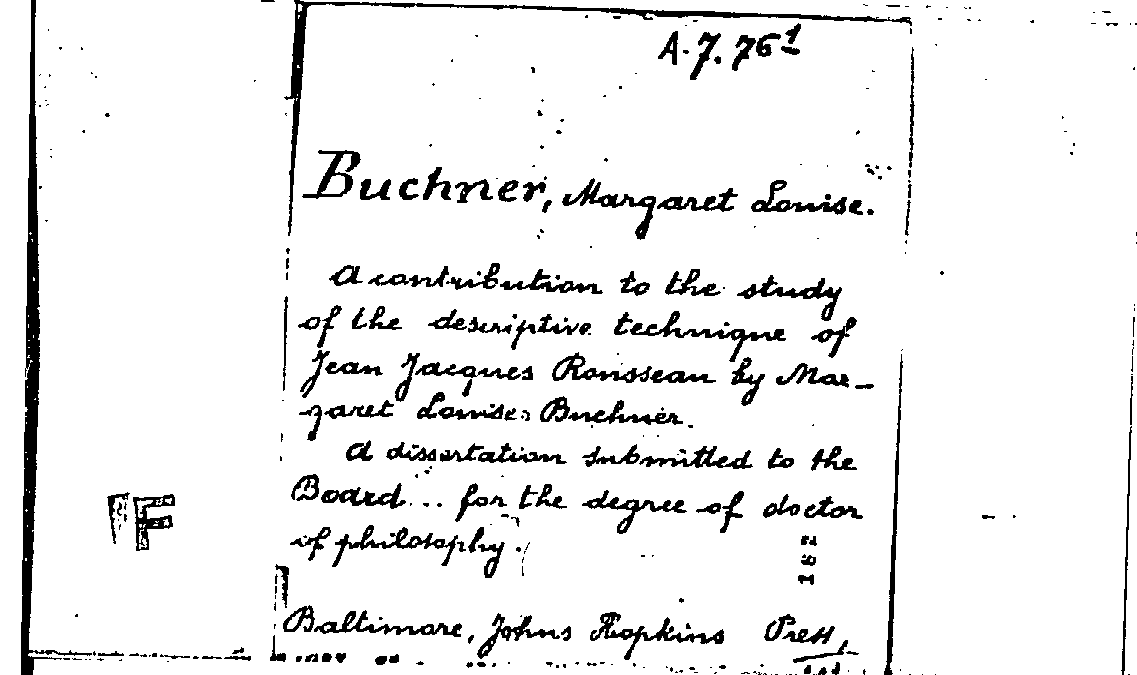 A.7.76¹
Buchner, Margaret Louise.
A contribution to the study
of the descriptive technique of
Jean Jacques Rousseau by Mar-
garet Louise Buchner.
A dissertation submitted to the
Board... for the degree of doctor
of philosophy.
F
162
Baltimore, Johns Hopkins Press,